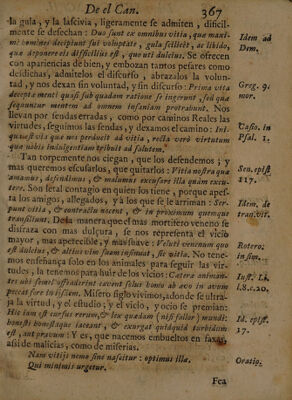 De el Can. 367
la gula, y la lascivia, ligeramente se admiten, dificil-
mente se desechan: Duo sunt ex omnibus vitia, que maxi-
mè homines decipiunt sui voluptate, gula scilicèt, ac libido,
que deponere eis difficilius est, quo uti dulcius. Se ofrecen
con apariencias de bien, y embozan tantos pesares como
desdichas, admitelos el discurso, abrazalos la volun-
tad, y nos dexan sin voluntad, y sin discurso: Prima vita
decepti mente: quasi sub quadam ratione se ingerunt, sed que
sequuntur mentem ad omnem insaniam protrahunt. Nos
llevan por sendas erradas, como por caminos Reales las
virtudes, seguimos las sendas, y dexamos el camino: Ini-
que est via que nos perducit ad vitia, recta verò virtutum
que nobis indulgentiam tribuit ad salutem.
Tan torpemente nos ciegan, que los defendemos; y
mas queremos escusarlos, que quitarlos: Vitia nostra quia
amamus, defendimus, & malumus excusare illa quàm excu-
tere. Son fatal contagio en quien los tiene, porque apes-
ta los amigos, allegados, y à los que se le arriman: Ser-
punt vitia, & contractu nocent, & in proximum quemque
transiliunt. De la manera que el mas mortifero veneno se
disfraza con mas dulçura, se nos representa el vicio
mayor, mas apetecible, y mas suave: Veluti venenum quo
est dulcius, & altius vim suam insinuat, sic vitia. No tene-
mos enseñança solo en los animales para seguir las vir-
tudes, la tenemos para huir de los vicios:
para la virtud, y el estudio; y el vicio, y ocio se premian:
asi de malicias, como de miserias.
Nam vitijs nemo sine nascitur: optimus ille,
Qui minimis urgetur.
Fea
Idem ad
Dem.
Greg. 9.
mor.
Casio. in
Psal. 1.
Sen. epist.
117.
Idem. de
tran. vit.
Rotero.
in sim.
Iust. Li.
18. c. 20.
Id. epist.
17.
Oratio.